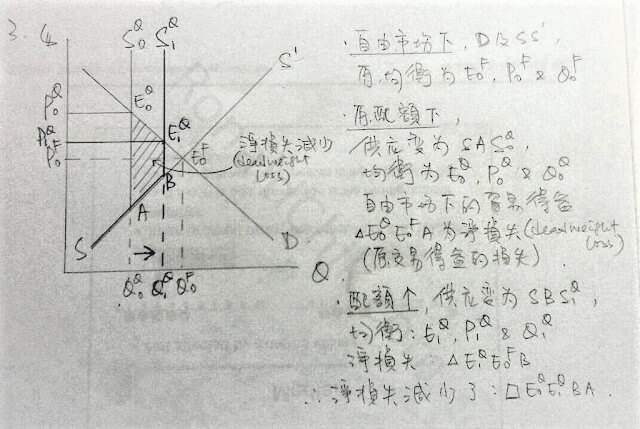 3. $
S₀^Q S₁^Q
S'
P₀^Q
E₀^Q
P₁^Q
E₁^Q
P₀^F
E₀^F
淨損失減少
(deadweight
loss)
B
A
S
D
Q
Q₀^Q Q₁^Q Q₀^F
·自由市場下, D及SS',
原均衡為E₀^F, P₀^F & Q₀^F
·原配額下,
供应变为SAS₀^Q,
均衡為E₀^Q, P₀^Q & Q₀^Q
自由市場下的貿易得益
△E₀^Q E₀^F A為淨損失(deadweight
loss)
(原交易得益的損失)
·配額↑, 供应变為SBS₁^Q,
均衡: E₁^Q, P₁^Q & Q₁^Q
淨損失: △E₁^Q E₀^F B
∴淨損失減少了: □E₀^Q E₁^Q BA.